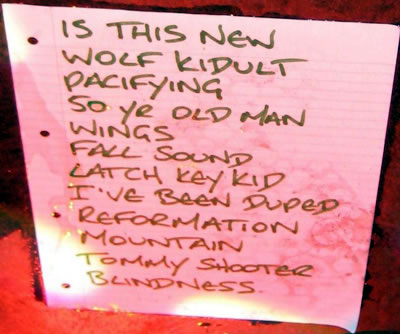 IS THIS NEW
WOLF KIDULT
PACIFYING
SO YR OLD MAN
WINGS
FALL SOUND
LATCH KEY KID
I'VE BEEN DUPED
REFORMATION
MOUNTAIN
TOMMY SHOOTER
BLINDNESS